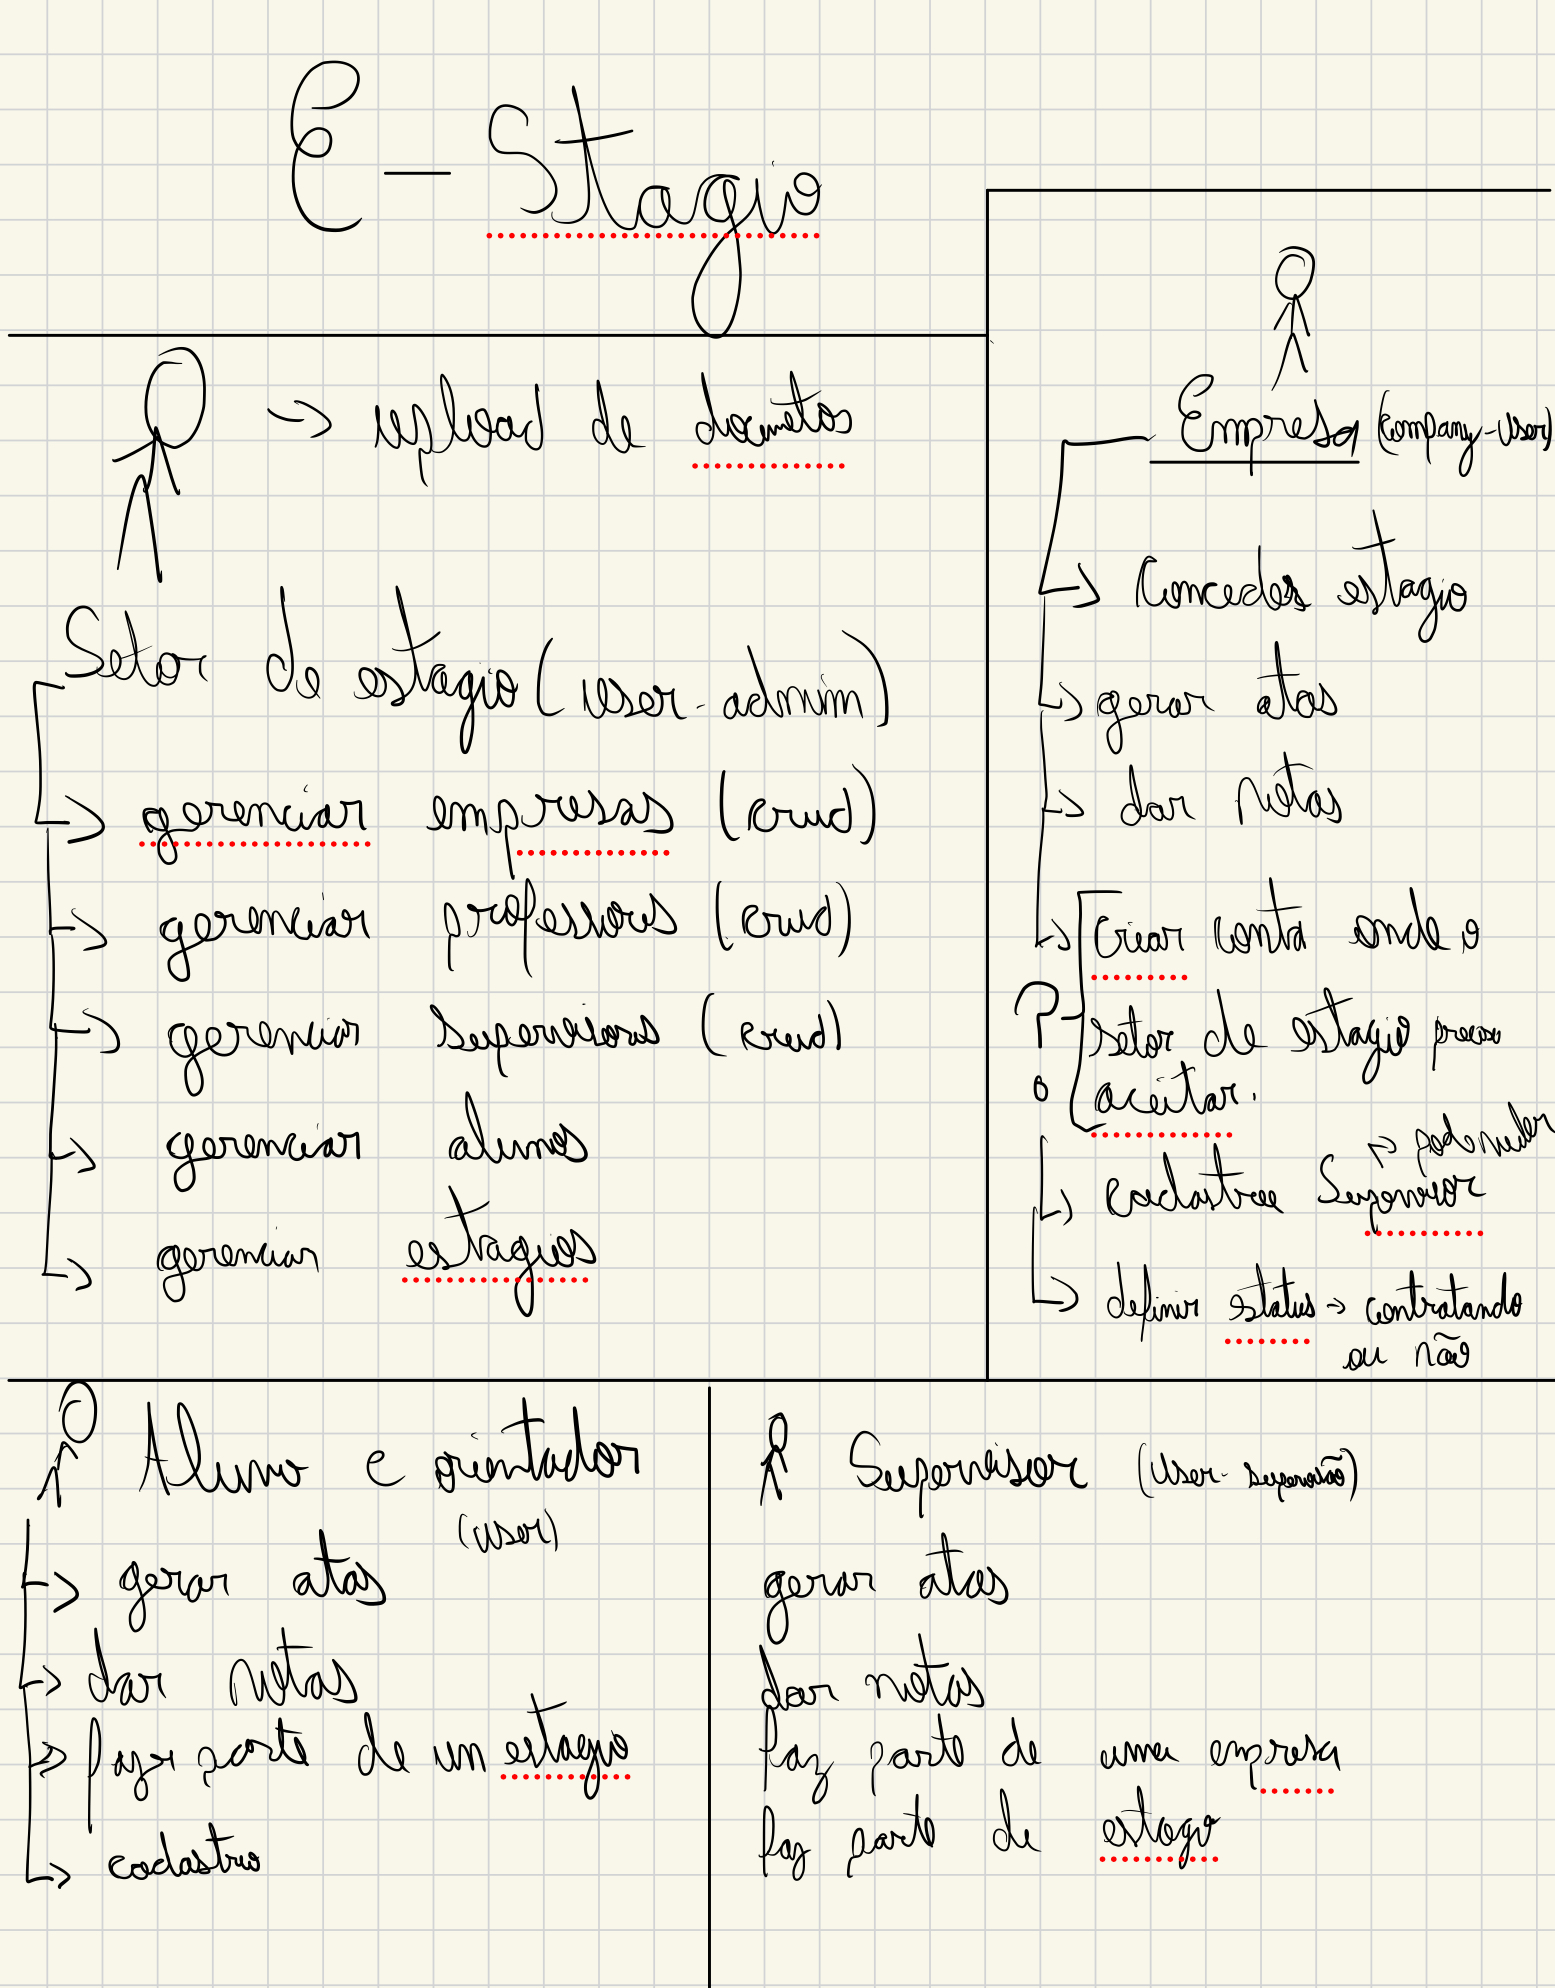 E-Stagio
→ upload de documetos
Setor de estagio (user-admin)
→ gerenciar empresas (crud)
→ gerenciar professores (crud)
→ gerenciar supervisores (crud)
→ gerenciar alunos
→ gerenciar estagios
Empresa (company-user)
→ Concedes estagio
→ gerar atas
→ dar notas
→ Criar conta onde o
? setor de estagio preciso
aceitar.
→ pode mudar
→ cadastrar Supervisor
→ definir estatus → contratando
ou não
Aluno e orientador
(user)
→ gerar atas
→ dar notas
→ fazer parte de um estagio
→ cadastro
Supervisor (User-supervisão)
gerar atas
dar notas
faz parte de uma empresa
faz parte de estagio